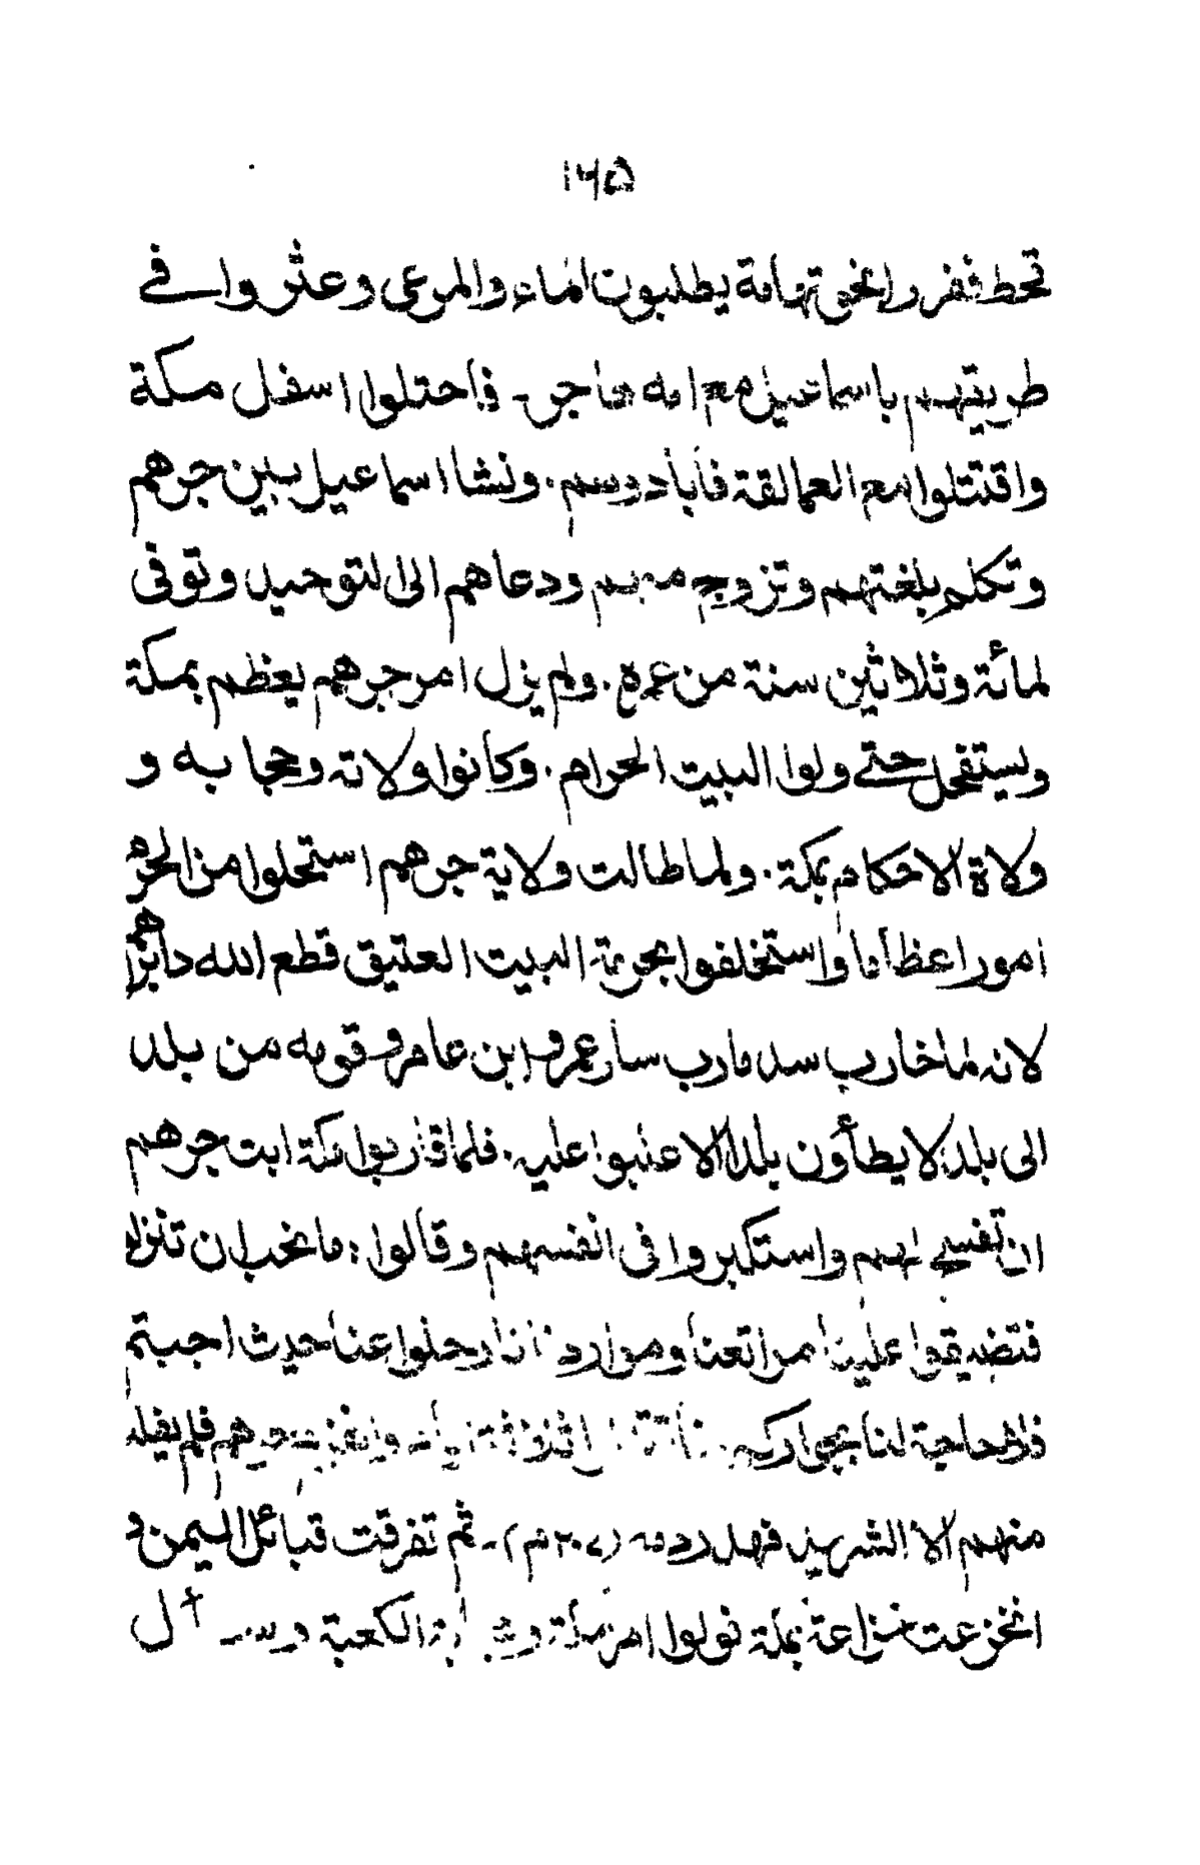 ١٦٥
قحط ففروا نحو تهامة يطلبون الماء والمرعى وعثروا في
طريقهم باسماعيل مع امه هاجر۔ فاحتلوا اسفل مكة
واقتتلوا مع العمالقة فأبادوهم. ونشأ اسماعيل بين جرهم
وتكلم بلغتهم وتزوج منهم ودعاهم الى التوحيد وتوفى
لمائة وثلاثين سنة من عمره. ولم يزل امر جرهم يعظم بمكة
ويستفحل حتى ولوا البيت الحرام. وكانوا ولاته وحجابه و
ولاة الاحكام بمكة. ولما طالت ولاية جرهم استحلوا من الحرم
امورا عظاما واستخلفوا بحرمة البيت العتيق قطع الله دابرهم
لانه لما خارب سد مارب سار عمرو ابن عامر وقومه من بلد
الى بلد لا يطأون بلدا الا غلبوا عليه. فلما قاربوا مكة ابت جرهم
ان تفسح لهم واستكبروا فى انفسهم وقالوا: ما نحب ان تنزلوا
فتضيقوا علينا مراتعنا ومواردنا ارحلوا عنا حيث احببتم
فلا حاجة لنا بجواركم جرهم فلم يفلت
منهم الا الشريد (٢٠٧م)۔ ثم تفرقت قبائل اليمن و
انخزعت خزاعة بمكة فولوا امر مكة الكعبة